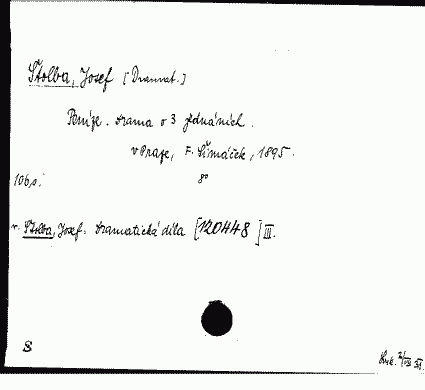 Štolba, Josef [Dramat.]
Peníze. Drama o 3 jednáních.
v Praze, F. Šimáček, 1895.
106 s. 8°
v. Štolba, Josef. Dramatická díla [120448] III.
B